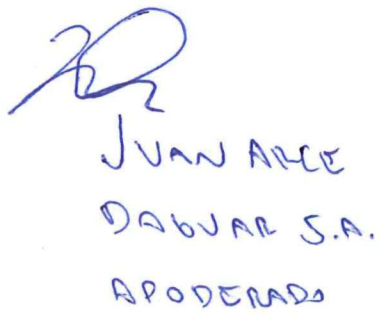 JUAN ARCE
DAGUAR S.A.
APODERADO